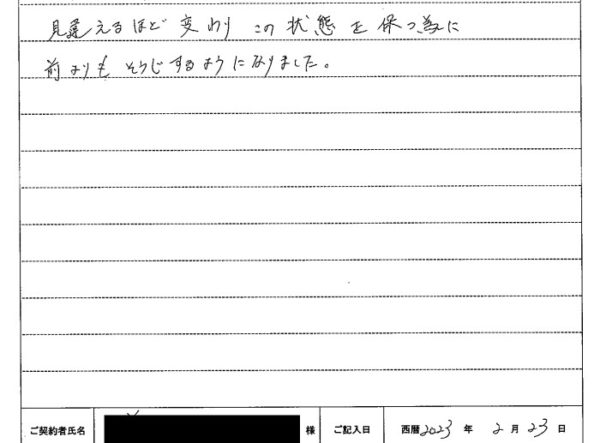 見違えるほど変わりこの状態を保つ為に
前よりもそうじするようになりました。
ご契約者氏名 様 ご記入日 西暦2023年 2月23日